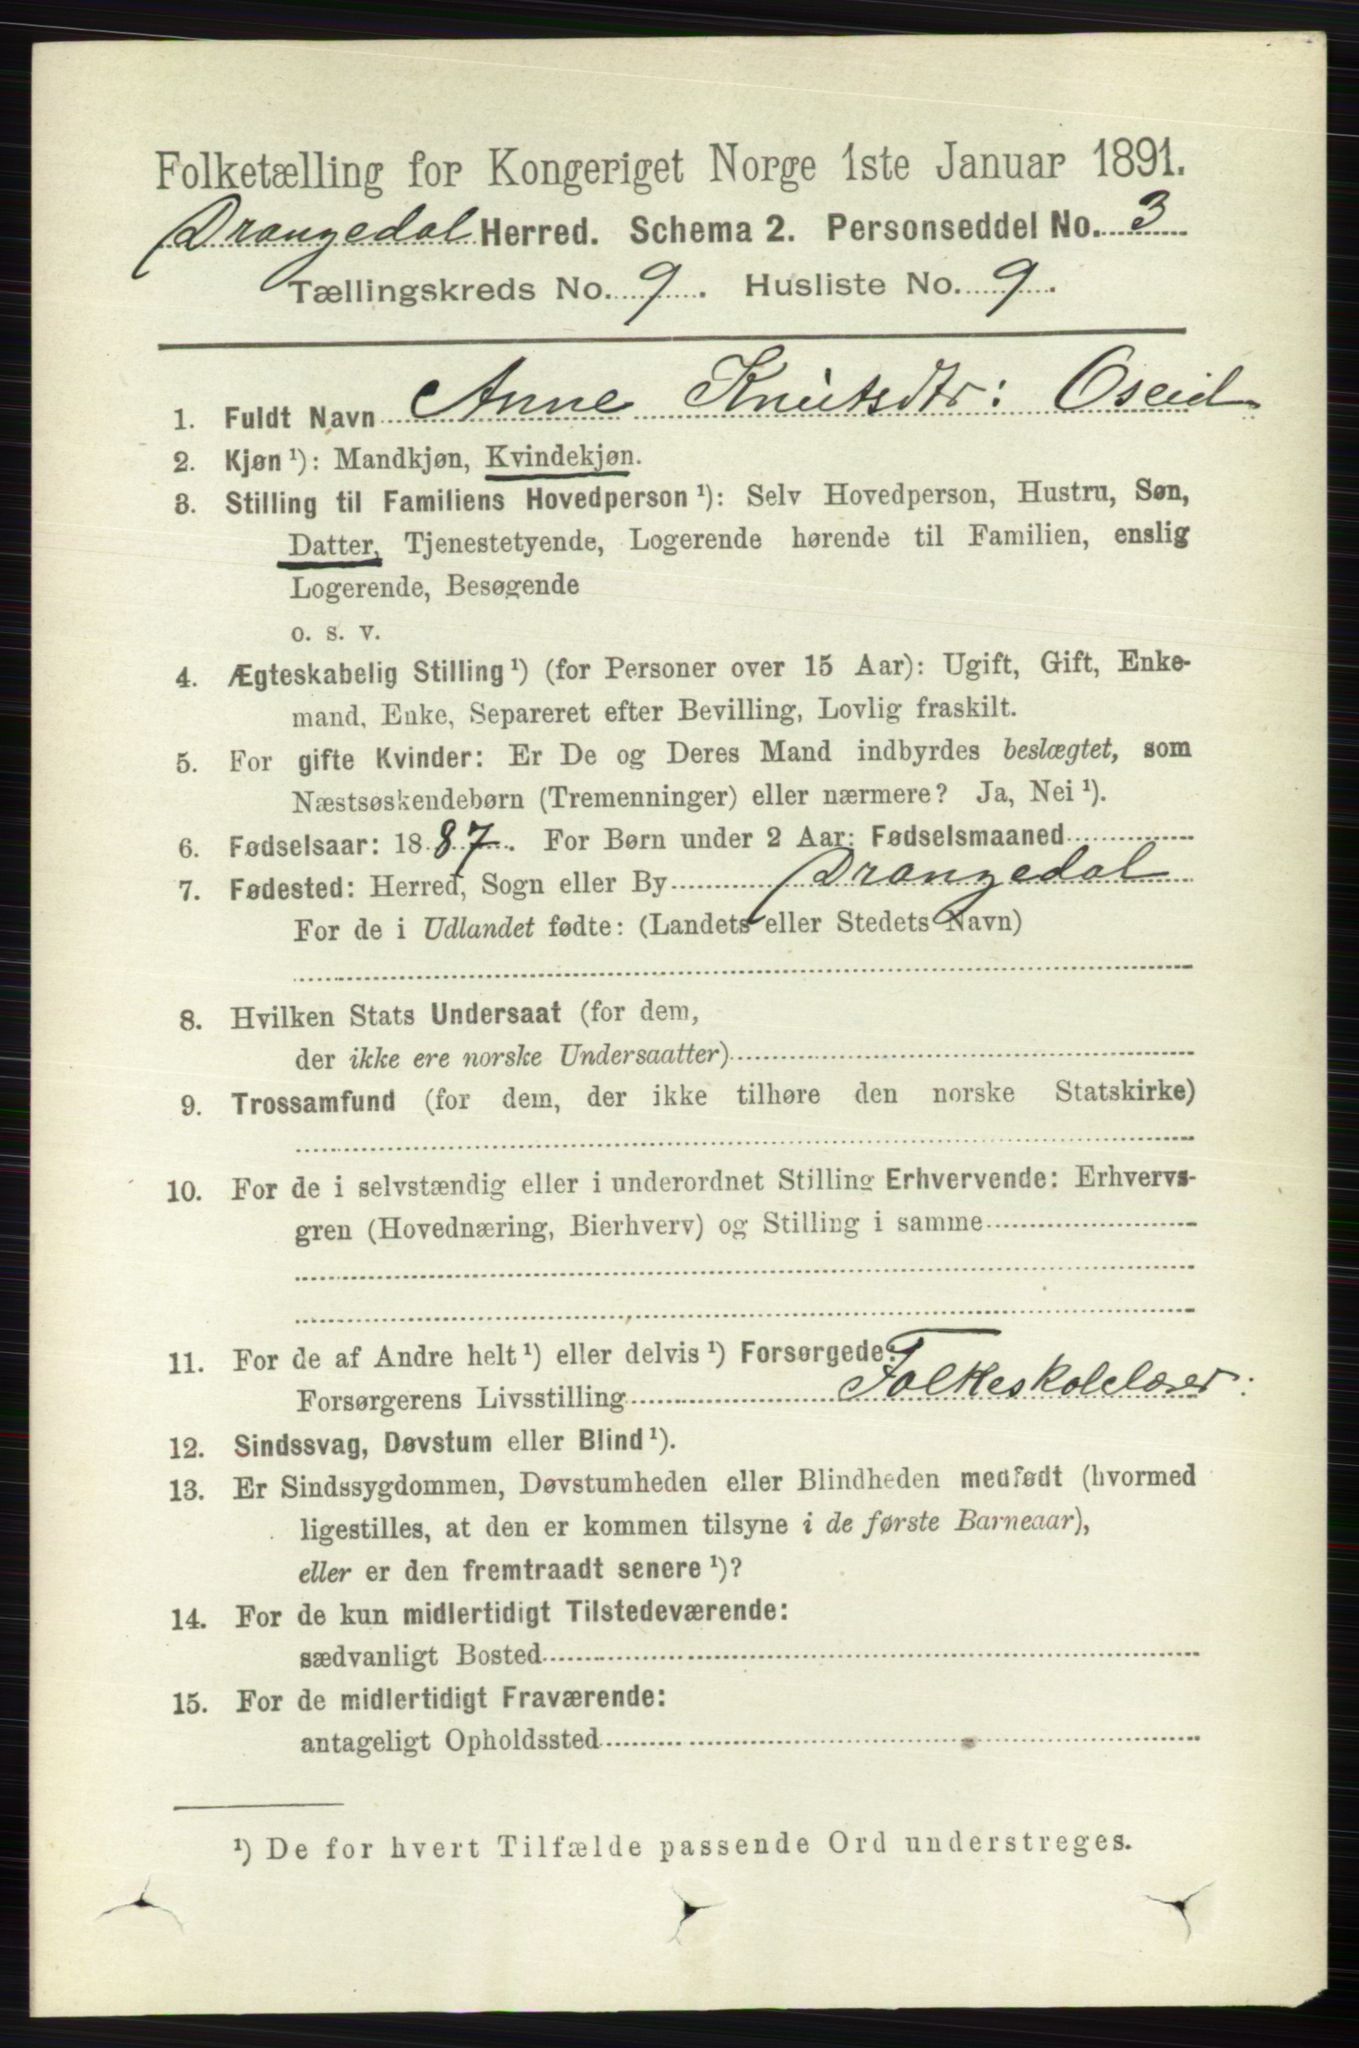 Folketælling for Kongeriget Norge 1ste Januar 1891.
Drangedal Herred. Schema 2. Personseddel No. 3
Tællingskreds No. 9. Husliste No. 9.
1. Fuldt Navn Anne Knutsdtr: Oseid
2. Kjøn ¹): Mandkjøn, Kvindekjøn.
3. Stilling til Familiens Hovedperson ¹): Selv Hovedperson, Hustru, Søn,
Datter, Tjenestetyende, Logerende hørende til Familien, enslig
Logerende, Besøgende
o. s. v.
4. Ægteskabelig Stilling ¹) (for Personer over 15 Aar): Ugift, Gift, Enke-
mand, Enke, Separeret efter Bevilling, Lovlig fraskilt.
5. For gifte Kvinder: Er De og Deres Mand indbyrdes beslægtet, som
Næstsøskendebørn (Tremenninger) eller nærmere? Ja, Nei ¹).
6. Fødselsaar: 1887. For Børn under 2 Aar: Fødselsmaaned
7. Fødested: Herred, Sogn eller By Drangedal
For de i Udlandet fødte: (Landets eller Stedets Navn)
8. Hvilken Stats Undersaat (for dem,
der ikke ere norske Undersaatter)
9. Trossamfund (for dem, der ikke tilhøre den norske Statskirke)
10. For de i selvstændig eller i underordnet Stilling Erhvervende: Erhvervs-
gren (Hovednæring, Bierhverv) og Stilling i samme
11. For de af Andre helt ¹) eller delvis ¹) Forsørgede:
Forsørgerens Livsstilling Folkeskolelærer:
12. Sindssvag, Døvstum eller Blind ¹).
13. Er Sindssygdommen, Døvstumheden eller Blindheden medfødt (hvormed
ligestilles, at den er kommen tilsyne i de første Barneaar),
eller er den fremtraadt senere ¹)?
14. For de kun midlertidigt Tilstedeværende:
sædvanligt Bosted
15. For de midlertidigt Fraværende:
antageligt Opholdssted
¹) De for hvert Tilfælde passende Ord understreges.